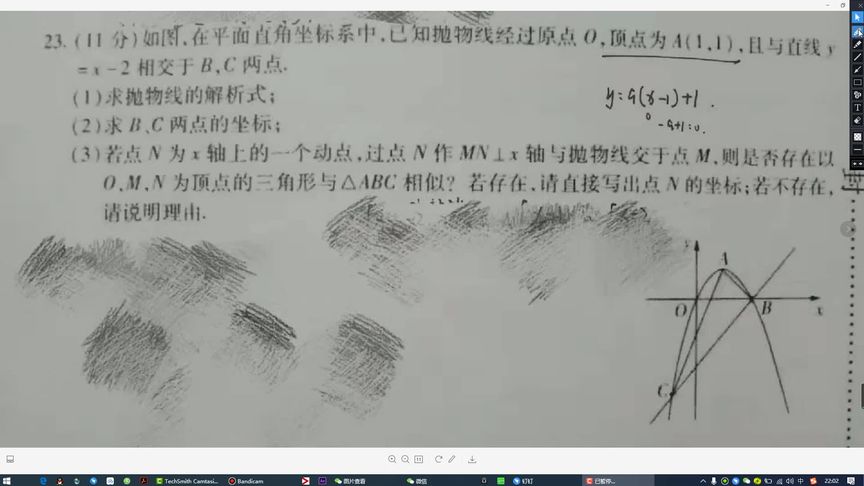 23. (11 分)如图,在平面直角坐标系中,已知抛物线经过原点 O,顶点为 A(1,1),且与直线 y
=x-2 相交于 B,C 两点.
(1)求抛物线的解析式;
(2)求 B、C 两点的坐标;
(3)若点 N 为 x 轴上的一个动点,过点 N 作 MN⊥x 轴与抛物线交于点 M,则是否存在以
O,M,N 为顶点的三角形与△ABC 相似?若存在,请直接写出点 N 的坐标;若不存在,
请说明理由.
y=a(x-1)+1.
-a+1=0.
y
A
O
B
x
C
TechSmith Camtasi...
Bandicam
图片查看
微信
钉钉
已暂停...
中
22:02